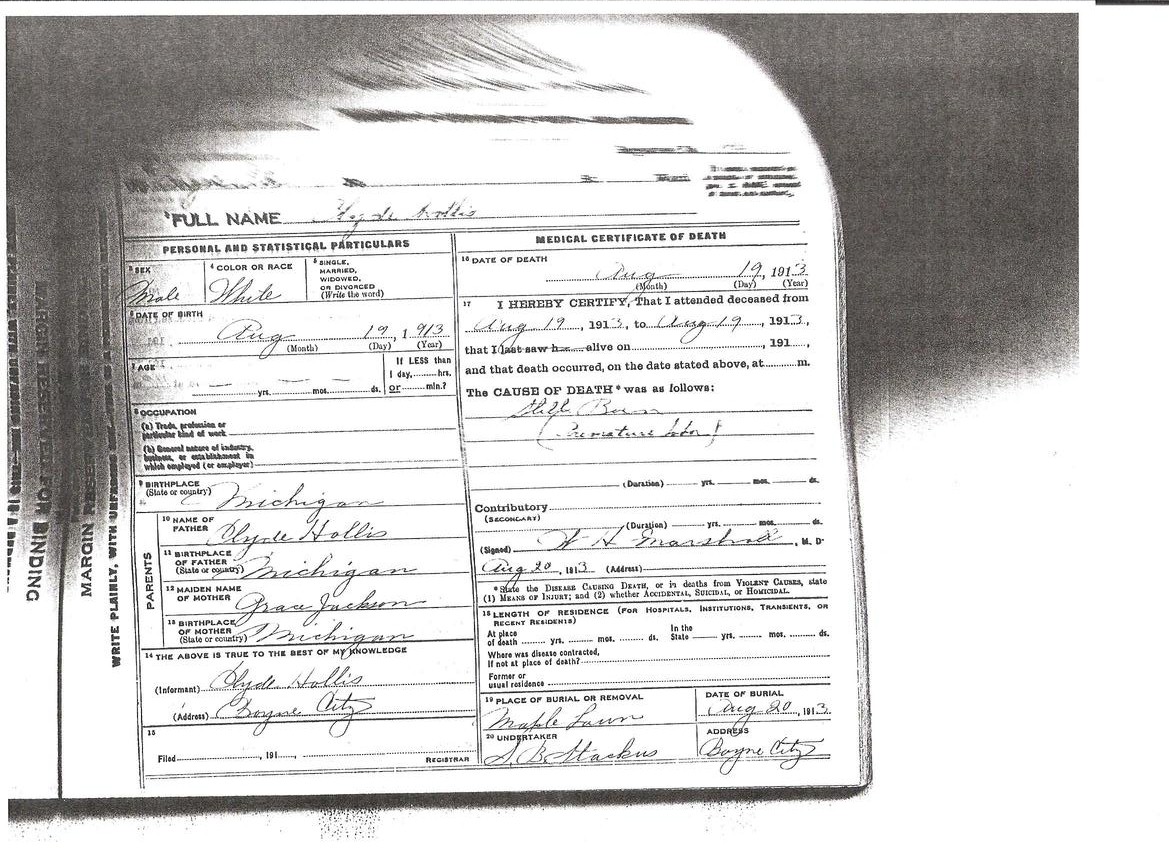 FULL NAME Clyde Hollis
PERSONAL AND STATISTICAL PARTICULARS
3 SEX
Male
4 COLOR OR RACE
White
5 SINGLE,
MARRIED,
WIDOWED,
OR DIVORCED
(Write the word)
6 DATE OF BIRTH
Aug 19, 1913
(Month) (Day) (Year)
7 AGE
yrs. mos. ds.
If LESS than
1 day, hrs.
or min.?
8 OCCUPATION
(a) Trade, profession or
particular kind of work
(b) General nature of industry,
business, or establishment in
which employed (or employer)
9 BIRTHPLACE
(State or country)
Michigan
PARENTS
10 NAME OF
FATHER
Clyde Hollis
11 BIRTHPLACE
OF FATHER
(State or country)
Michigan
12 MAIDEN NAME
OF MOTHER
Grace Jackson
13 BIRTHPLACE
OF MOTHER
(State or country)
Michigan
14 THE ABOVE IS TRUE TO THE BEST OF MY KNOWLEDGE
(Informant) Clyde Hollis
(Address) Boyne City
15
Filed , 191
REGISTRAR
MEDICAL CERTIFICATE OF DEATH
16 DATE OF DEATH
Aug 19, 1913
(Month) (Day) (Year)
17 I HEREBY CERTIFY, That I attended deceased from
Aug 19, 1913, to Aug 19, 1913,
that I last saw h alive on , 191 ,
and that death occurred, on the date stated above, at m.
The CAUSE OF DEATH* was as follows:
Still Born
(Premature labor)
(Duration) yrs. mos. ds.
Contributory
(SECONDARY)
(Duration) yrs. mos. ds.
(Signed) W H Marshall, M. D.
Aug 20, 1913 (Address)
*State the DISEASE CAUSING DEATH, or in deaths from VIOLENT CAUSES, state
(1) MEANS OF INJURY; and (2) whether ACCIDENTAL, SUICIDAL, OR HOMICIDAL.
18 LENGTH OF RESIDENCE (FOR HOSPITALS, INSTITUTIONS, TRANSIENTS, OR
RECENT RESIDENTS)
At place
of death yrs. mos. ds.
In the
State yrs. mos. ds.
Where was disease contracted,
If not at place of death?
Former or
usual residence
19 PLACE OF BURIAL OR REMOVAL
Maple Lawn
DATE OF BURIAL
Aug 20, 1913
20 UNDERTAKER
S. B. Stackus
ADDRESS
Boyne City
BINDING
MARGIN
WRITE PLAINLY, WITH